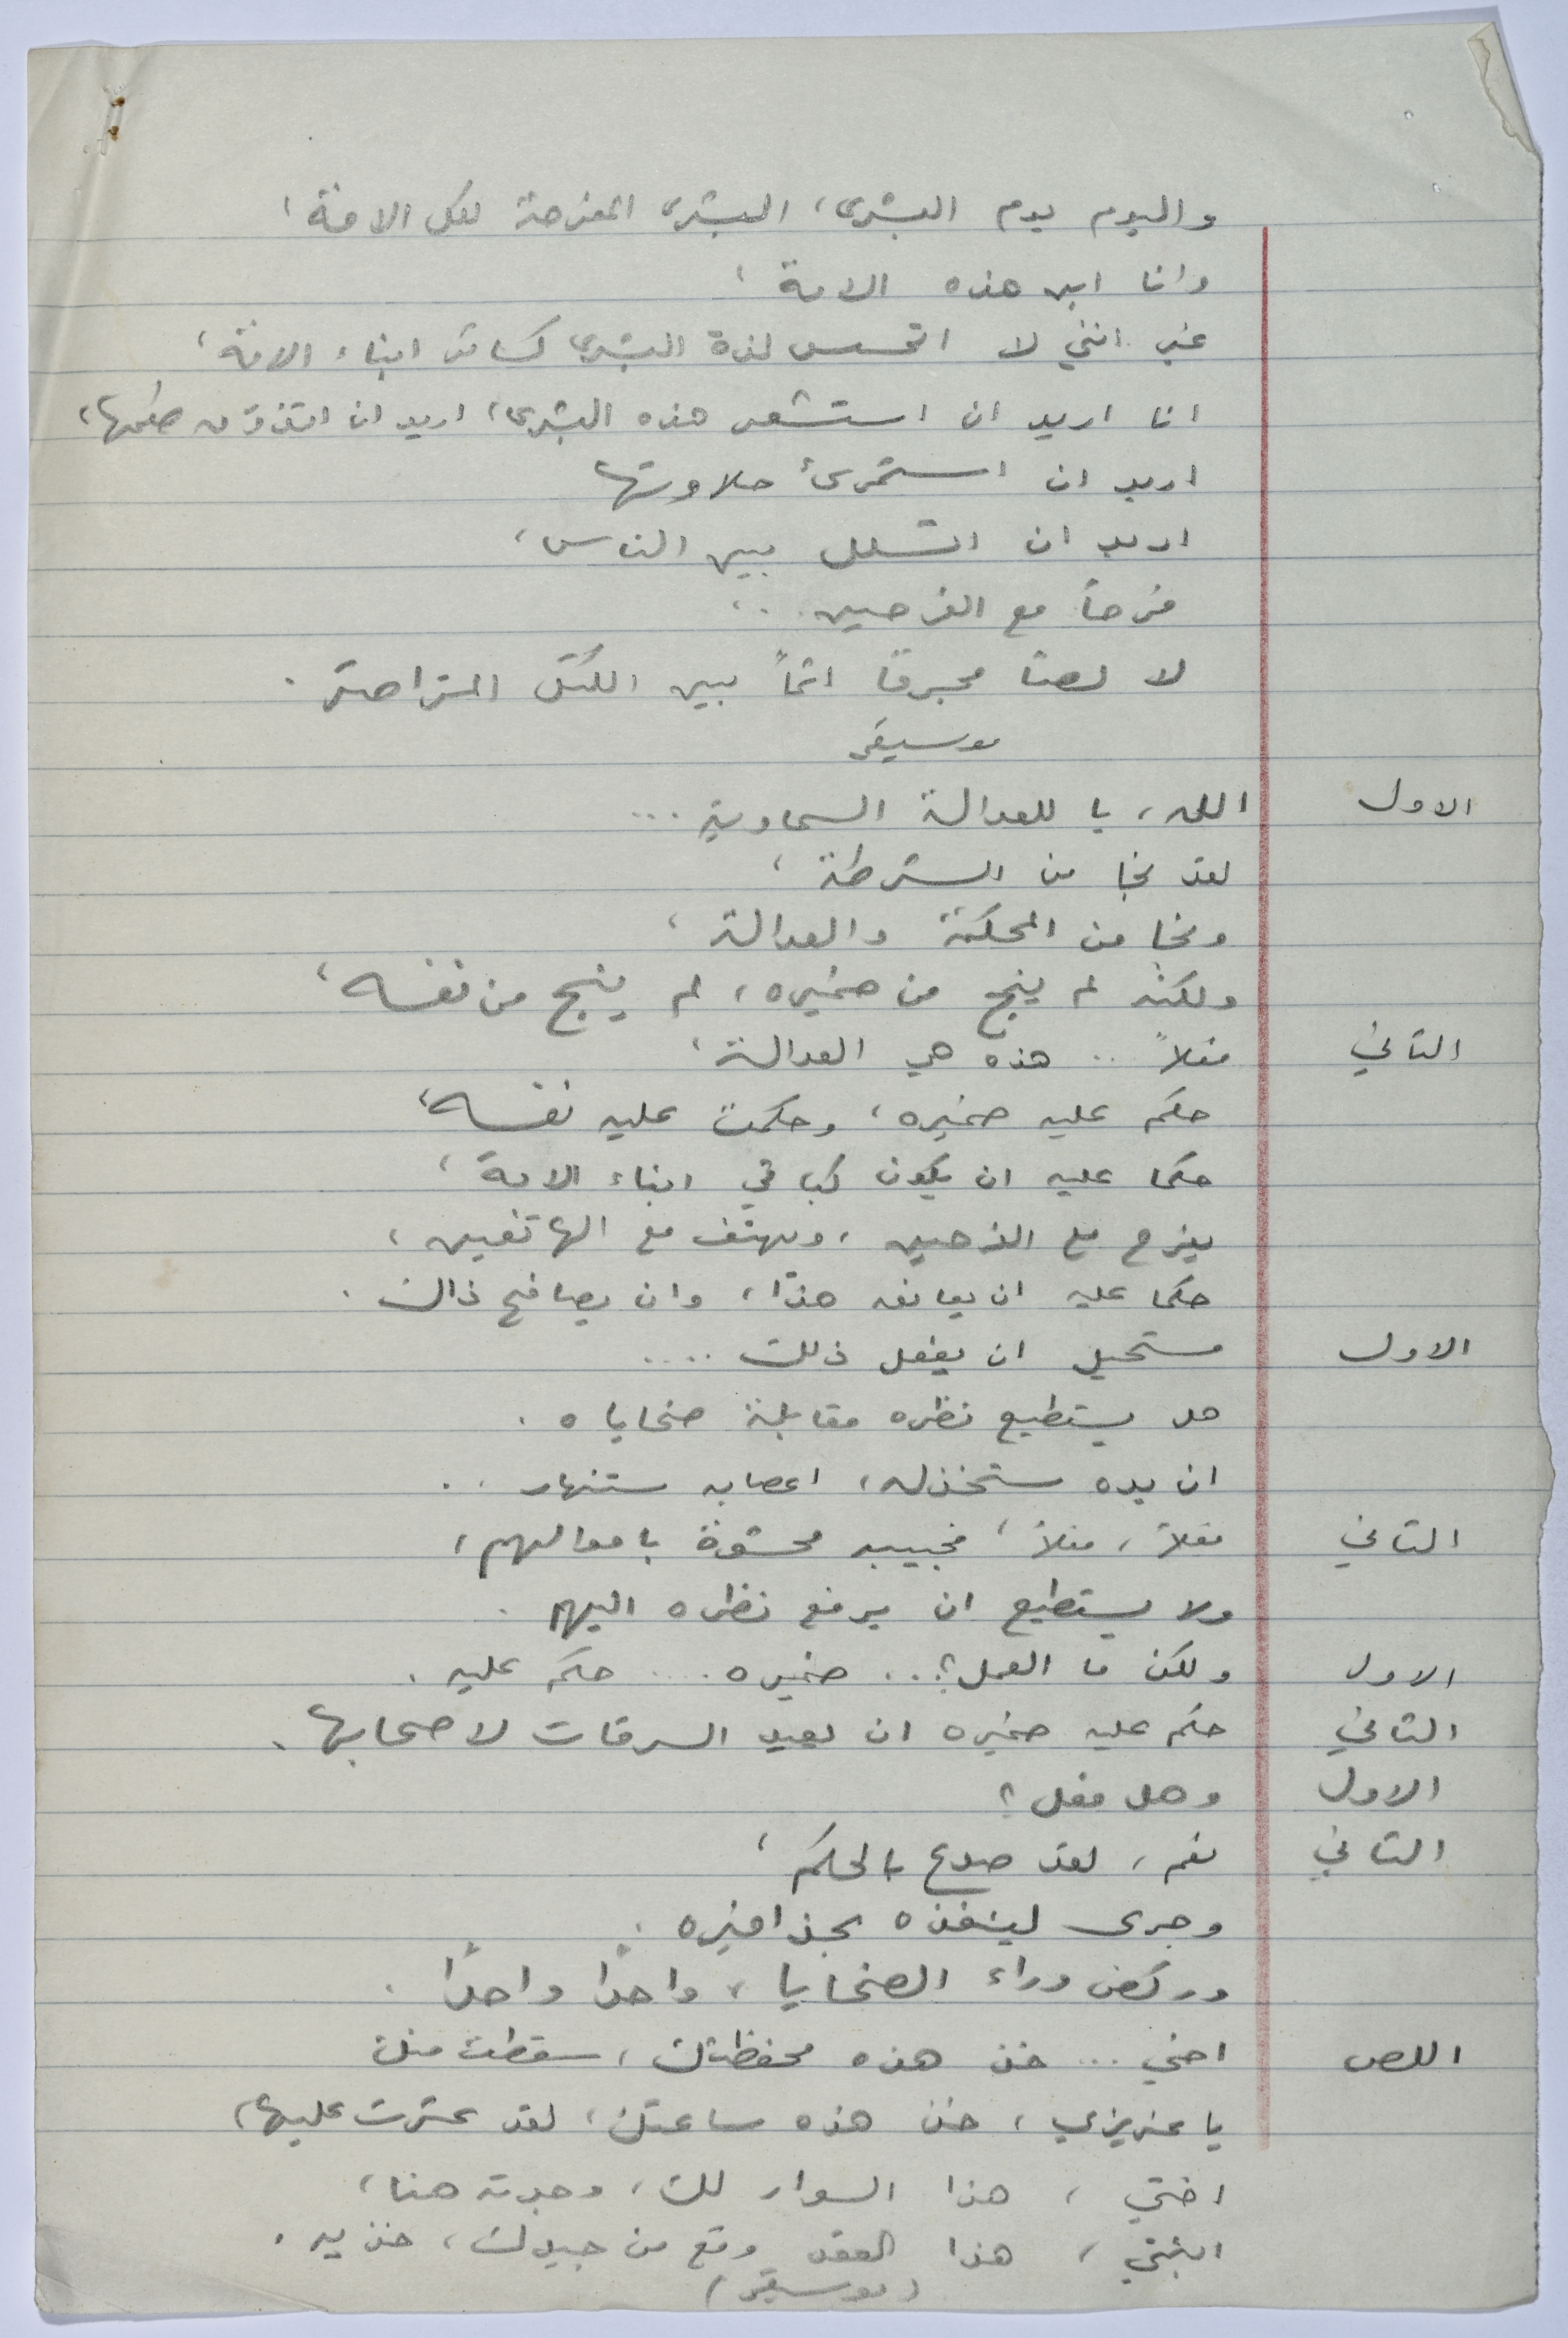 واليوم يوم البشرى، البشرى المفرحة لكل الامة،
وانا ابن هذه الامة،
غير انني لا اتحسس لذة البشرى كسائر ابناء الامة،
انا اريد ان استشعر هذه البشرى، اريد ان اتذوق طعمها،
اريد ان استمرئ حلاوتها
اريد ان اتسلل بين الناس،
فرحاً مع الفرحين..،
لا لصاً مجرماً اثماً بين الكتل المتراصة.
موسيقى
الاول الله، يا للعدالة السماوية...
لقد نجا من الشرطة،
ونجا من المحكمة والعدالة،
ولكنه لم ينج من ضميره، لم ينج من نفسه،
الثاني فعلاً .. هذه هي العدالة،
حكم عليه ضميره، وحكمت عليه نفسه،
حكما عليه ان يكون كباقي ابناء الامة،
يفرح مع الفرحين، ويهتف مع الهاتفين،
حكما عليه ان يعانق هذا، وان يصافح ذاك.
الاول مستحيل ان يفعل ذلك ....
هل يستطيع نظره مقابلة ضحاياه.
ان يده ستخذله، اعصابه ستنهار..
الثاني فعلاً، فعلاً، فجيبه محشوة باموالهم،
ولا يستطيع ان يرفع نظره اليهم.
الاول ولكن ما العمل؟.. ضميره.... حكم عليه.
الثاني حكم عليه ضميره ان يعيد السرقات لاصحابها.
الاول وهل فعل؟
الثاني نعم، لقد صدع بالحكم،
وجرى لينفذه بحذافيره.
وركض وراء الضحايا، واحدًا واحدًا.
اللص اخي ... خذ هذه محفظتك، سقطت منك
يا عزيزي، خذ هذه ساعتك، لقد عثرت عليها،
اختي، هذا السوار لك، وجدته هنا،
ابنتي، هذا العقد وقع من جيدك، خذيه.
(موسيقى)